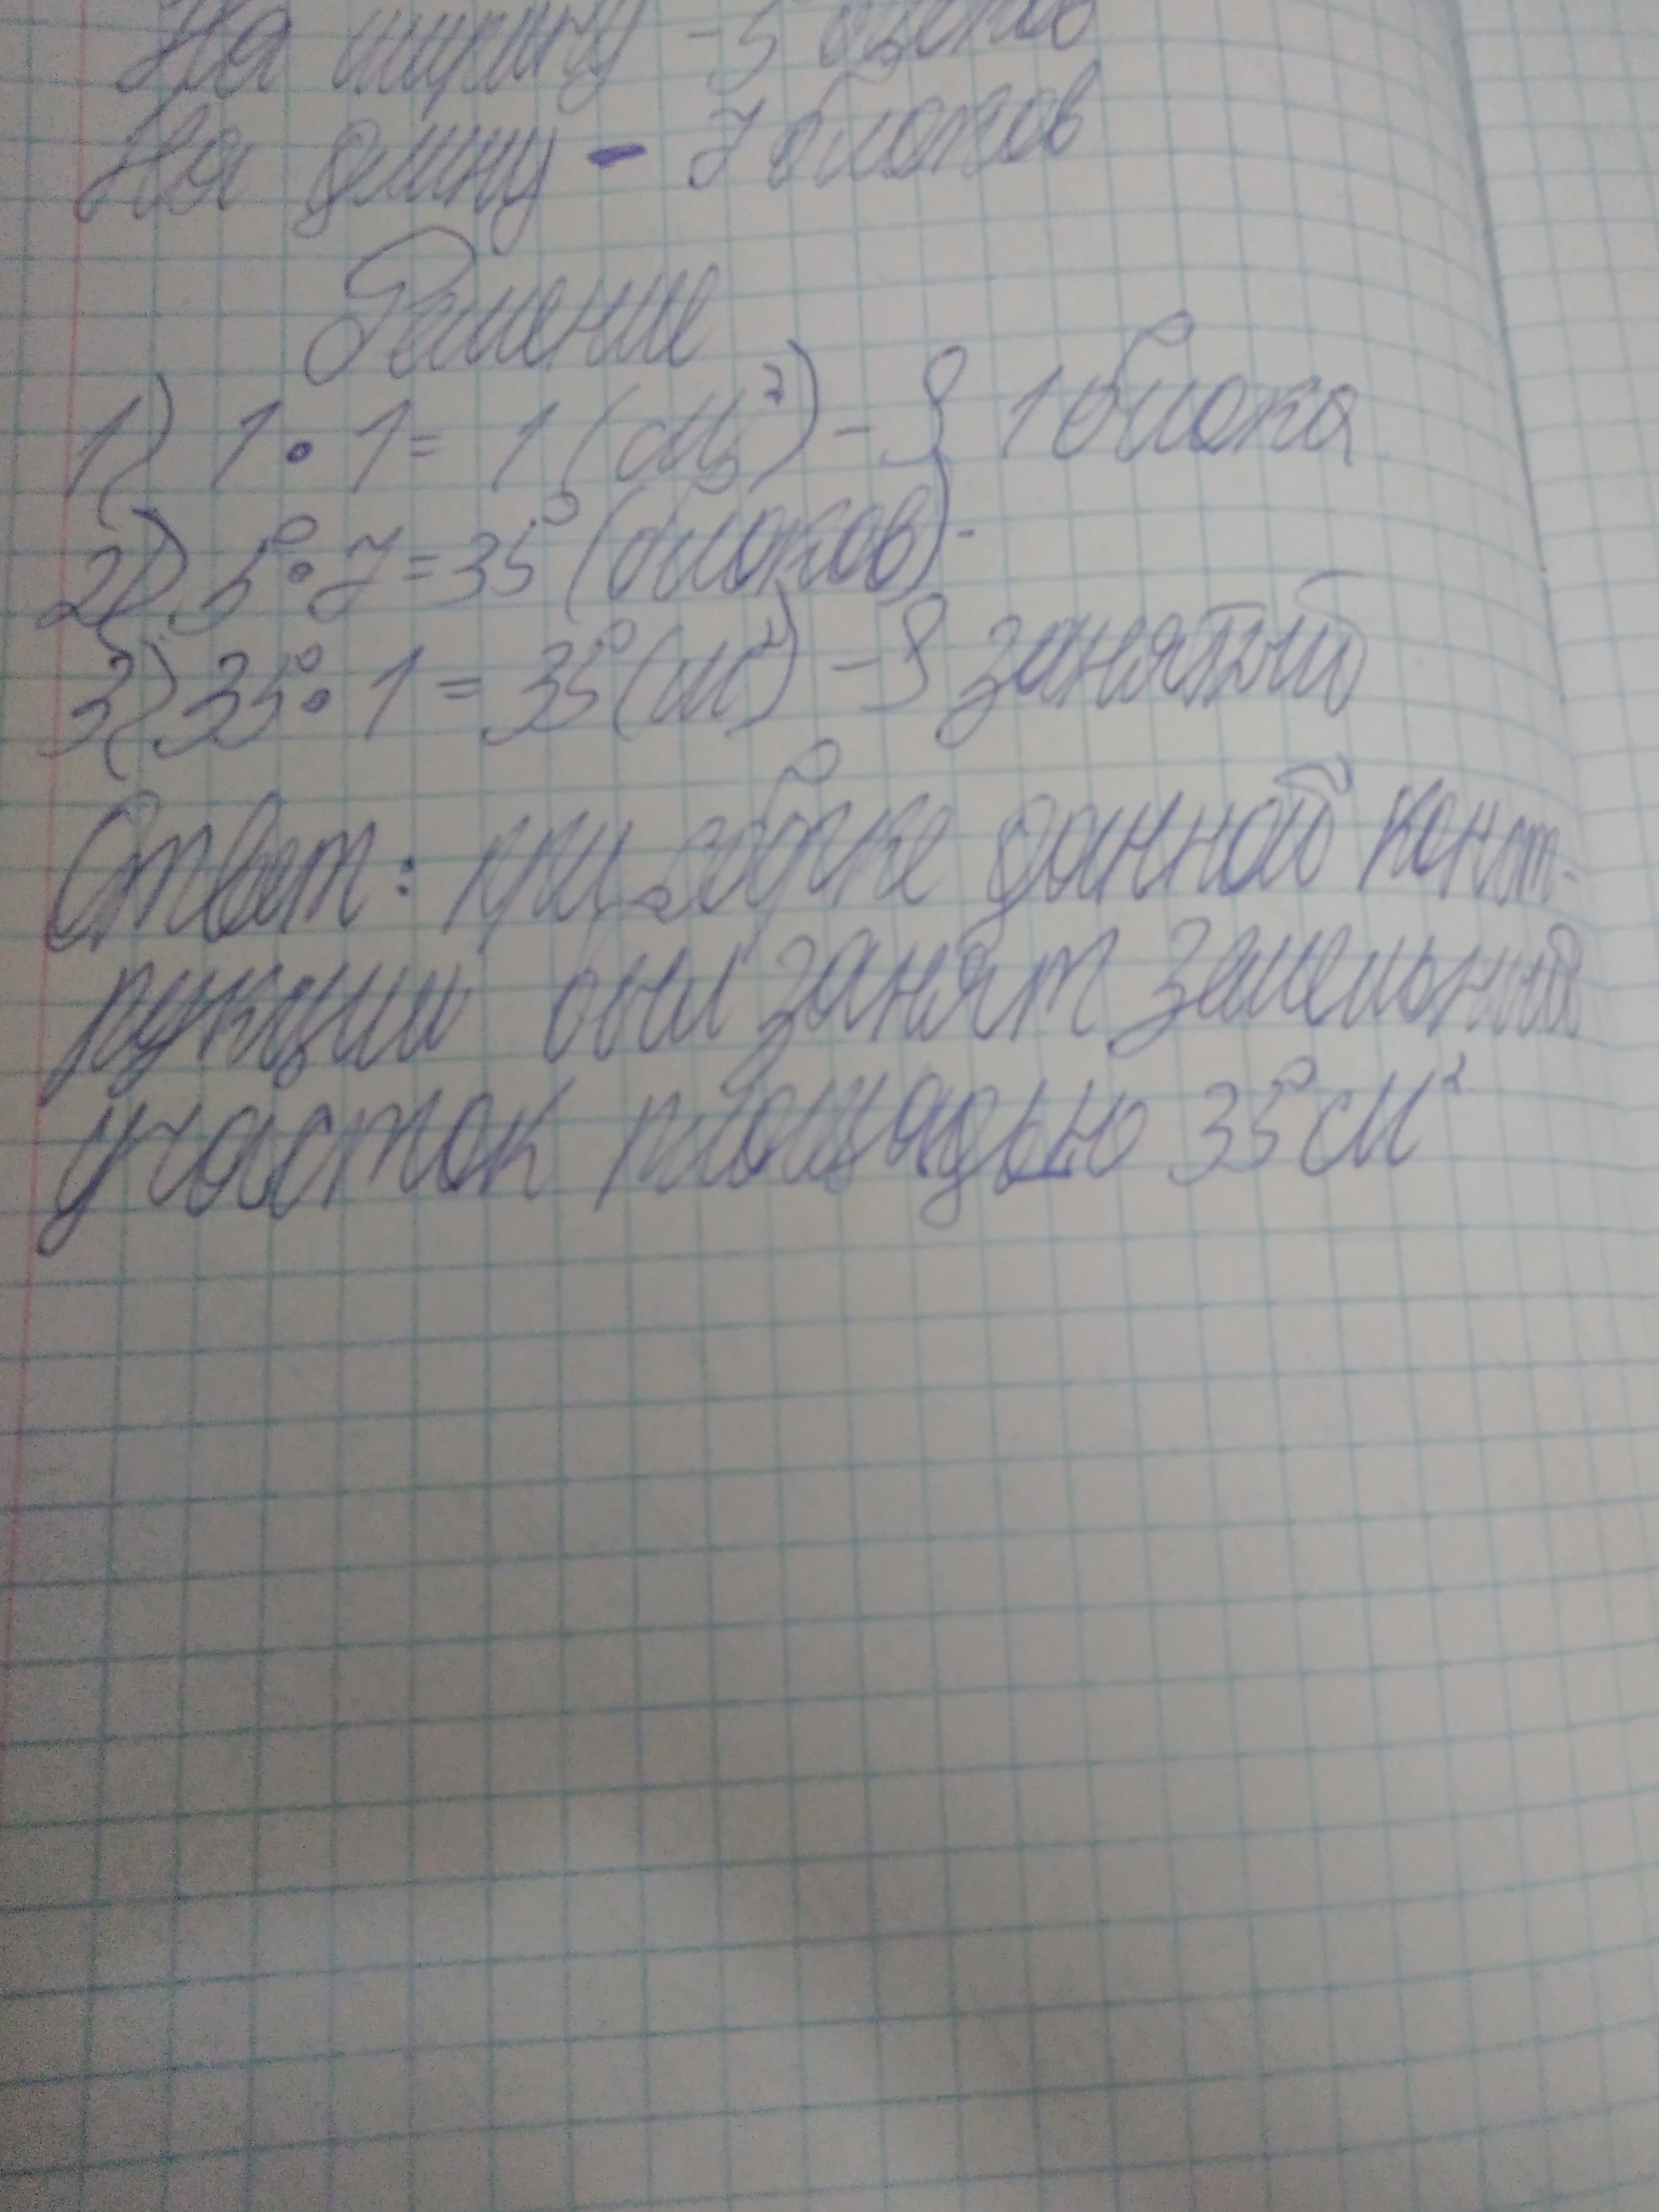 На ширину - 5 блоков
На длину - 7 блоков
Решение
1) 1 • 1 = 1 (м²) - S 1 блока
2) 5 • 7 = 35 (блоков) -
3) 35 • 1 = 35 (м²) - S занятый
Ответ: при сборке данной конст-
рукции был занят земельный
участок площадью 35 см²